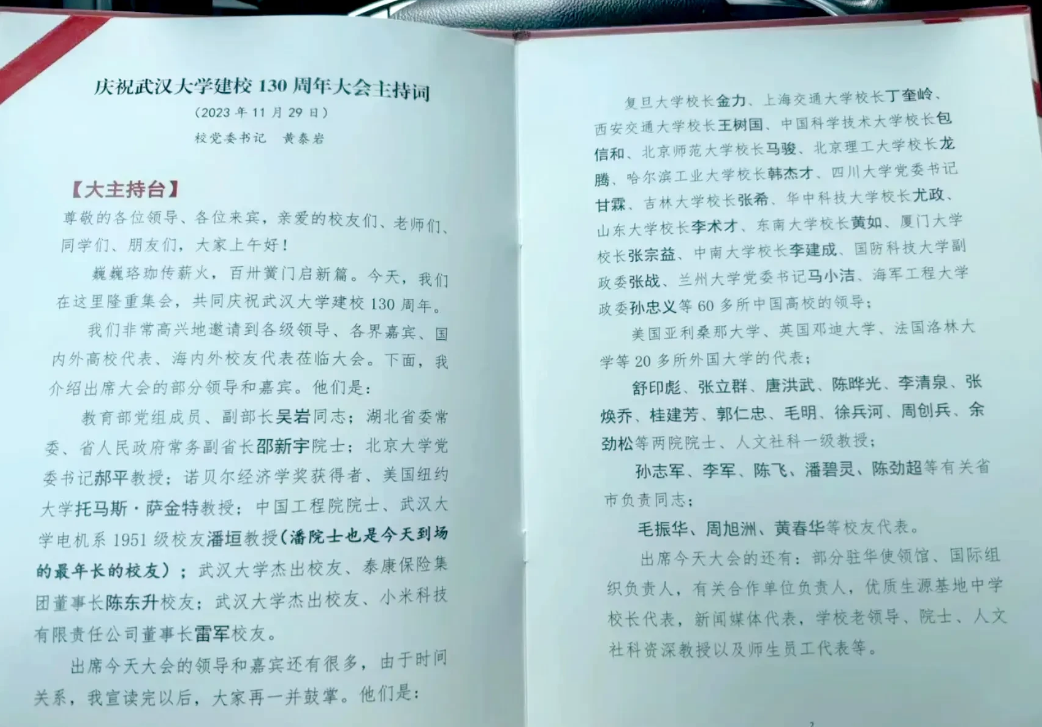 庆祝武汉大学建校 130 周年大会主持词
(2023 年 11 月 29 日)
校党委书记 黄泰岩
【大主持台】
尊敬的各位领导、各位来宾，亲爱的校友们、老师们、
同学们、朋友们，大家上午好！
巍巍珞珈传薪火，百卅黉门启新篇。今天，我们
在这里隆重集会，共同庆祝武汉大学建校 130 周年。
我们非常高兴地邀请到各级领导、各界嘉宾、国
内外高校代表、海内外校友代表莅临大会。下面，我
介绍出席大会的部分领导和嘉宾。他们是：
教育部党组成员、副部长吴岩同志；湖北省委常
委、省人民政府常务副省长邵新宇院士；北京大学党
委书记郝平教授；诺贝尔经济学奖获得者、美国纽约
大学托马斯·萨金特教授；中国工程院院士、武汉大
学电机系 1951 级校友潘垣教授(潘院士也是今天到场
的最年长的校友)；武汉大学杰出校友、泰康保险集
团董事长陈东升校友；武汉大学杰出校友、小米科技
有限责任公司董事长雷军校友。
出席今天大会的领导和嘉宾还有很多，由于时间
关系，我宣读完以后，大家再一并鼓掌。他们是：
复旦大学校长金力、上海交通大学校长丁奎岭、
西安交通大学校长王树国、中国科学技术大学校长包
信和、北京师范大学校长马骏、北京理工大学校长龙
腾、哈尔滨工业大学校长韩杰才、四川大学党委书记
甘霖、吉林大学校长张希、华中科技大学校长尤政、
山东大学校长李术才、东南大学校长黄如、厦门大学
校长张宗益、中南大学校长李建成、国防科技大学副
政委张战、兰州大学党委书记马小洁、海军工程大学
政委孙忠义等 60 多所中国高校的领导；
美国亚利桑那大学、英国邓迪大学、法国洛林大
学等 20 多所外国大学的代表；
舒印彪、张立群、唐洪武、陈晔光、李清泉、张
焕乔、桂建芳、郭仁忠、毛明、徐兵河、周创兵、余
劲松等两院院士、人文社科一级教授；
孙志军、李军、陈飞、潘碧灵、陈劲超等有关省
市负责同志；
毛振华、周旭洲、黄春华等校友代表。
出席今天大会的还有：部分驻华使领馆、国际组
织负责人，有关合作单位负责人，优质生源基地中学
校长代表，新闻媒体代表，学校老领导、院士、人文
社科资深教授以及师生员工代表等。